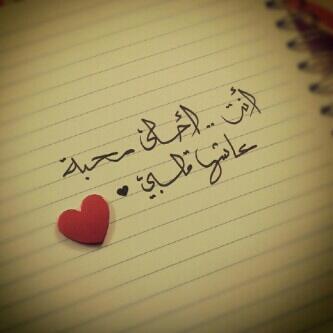 أنت .. أحلى محبة
عاشها قلبي ♥